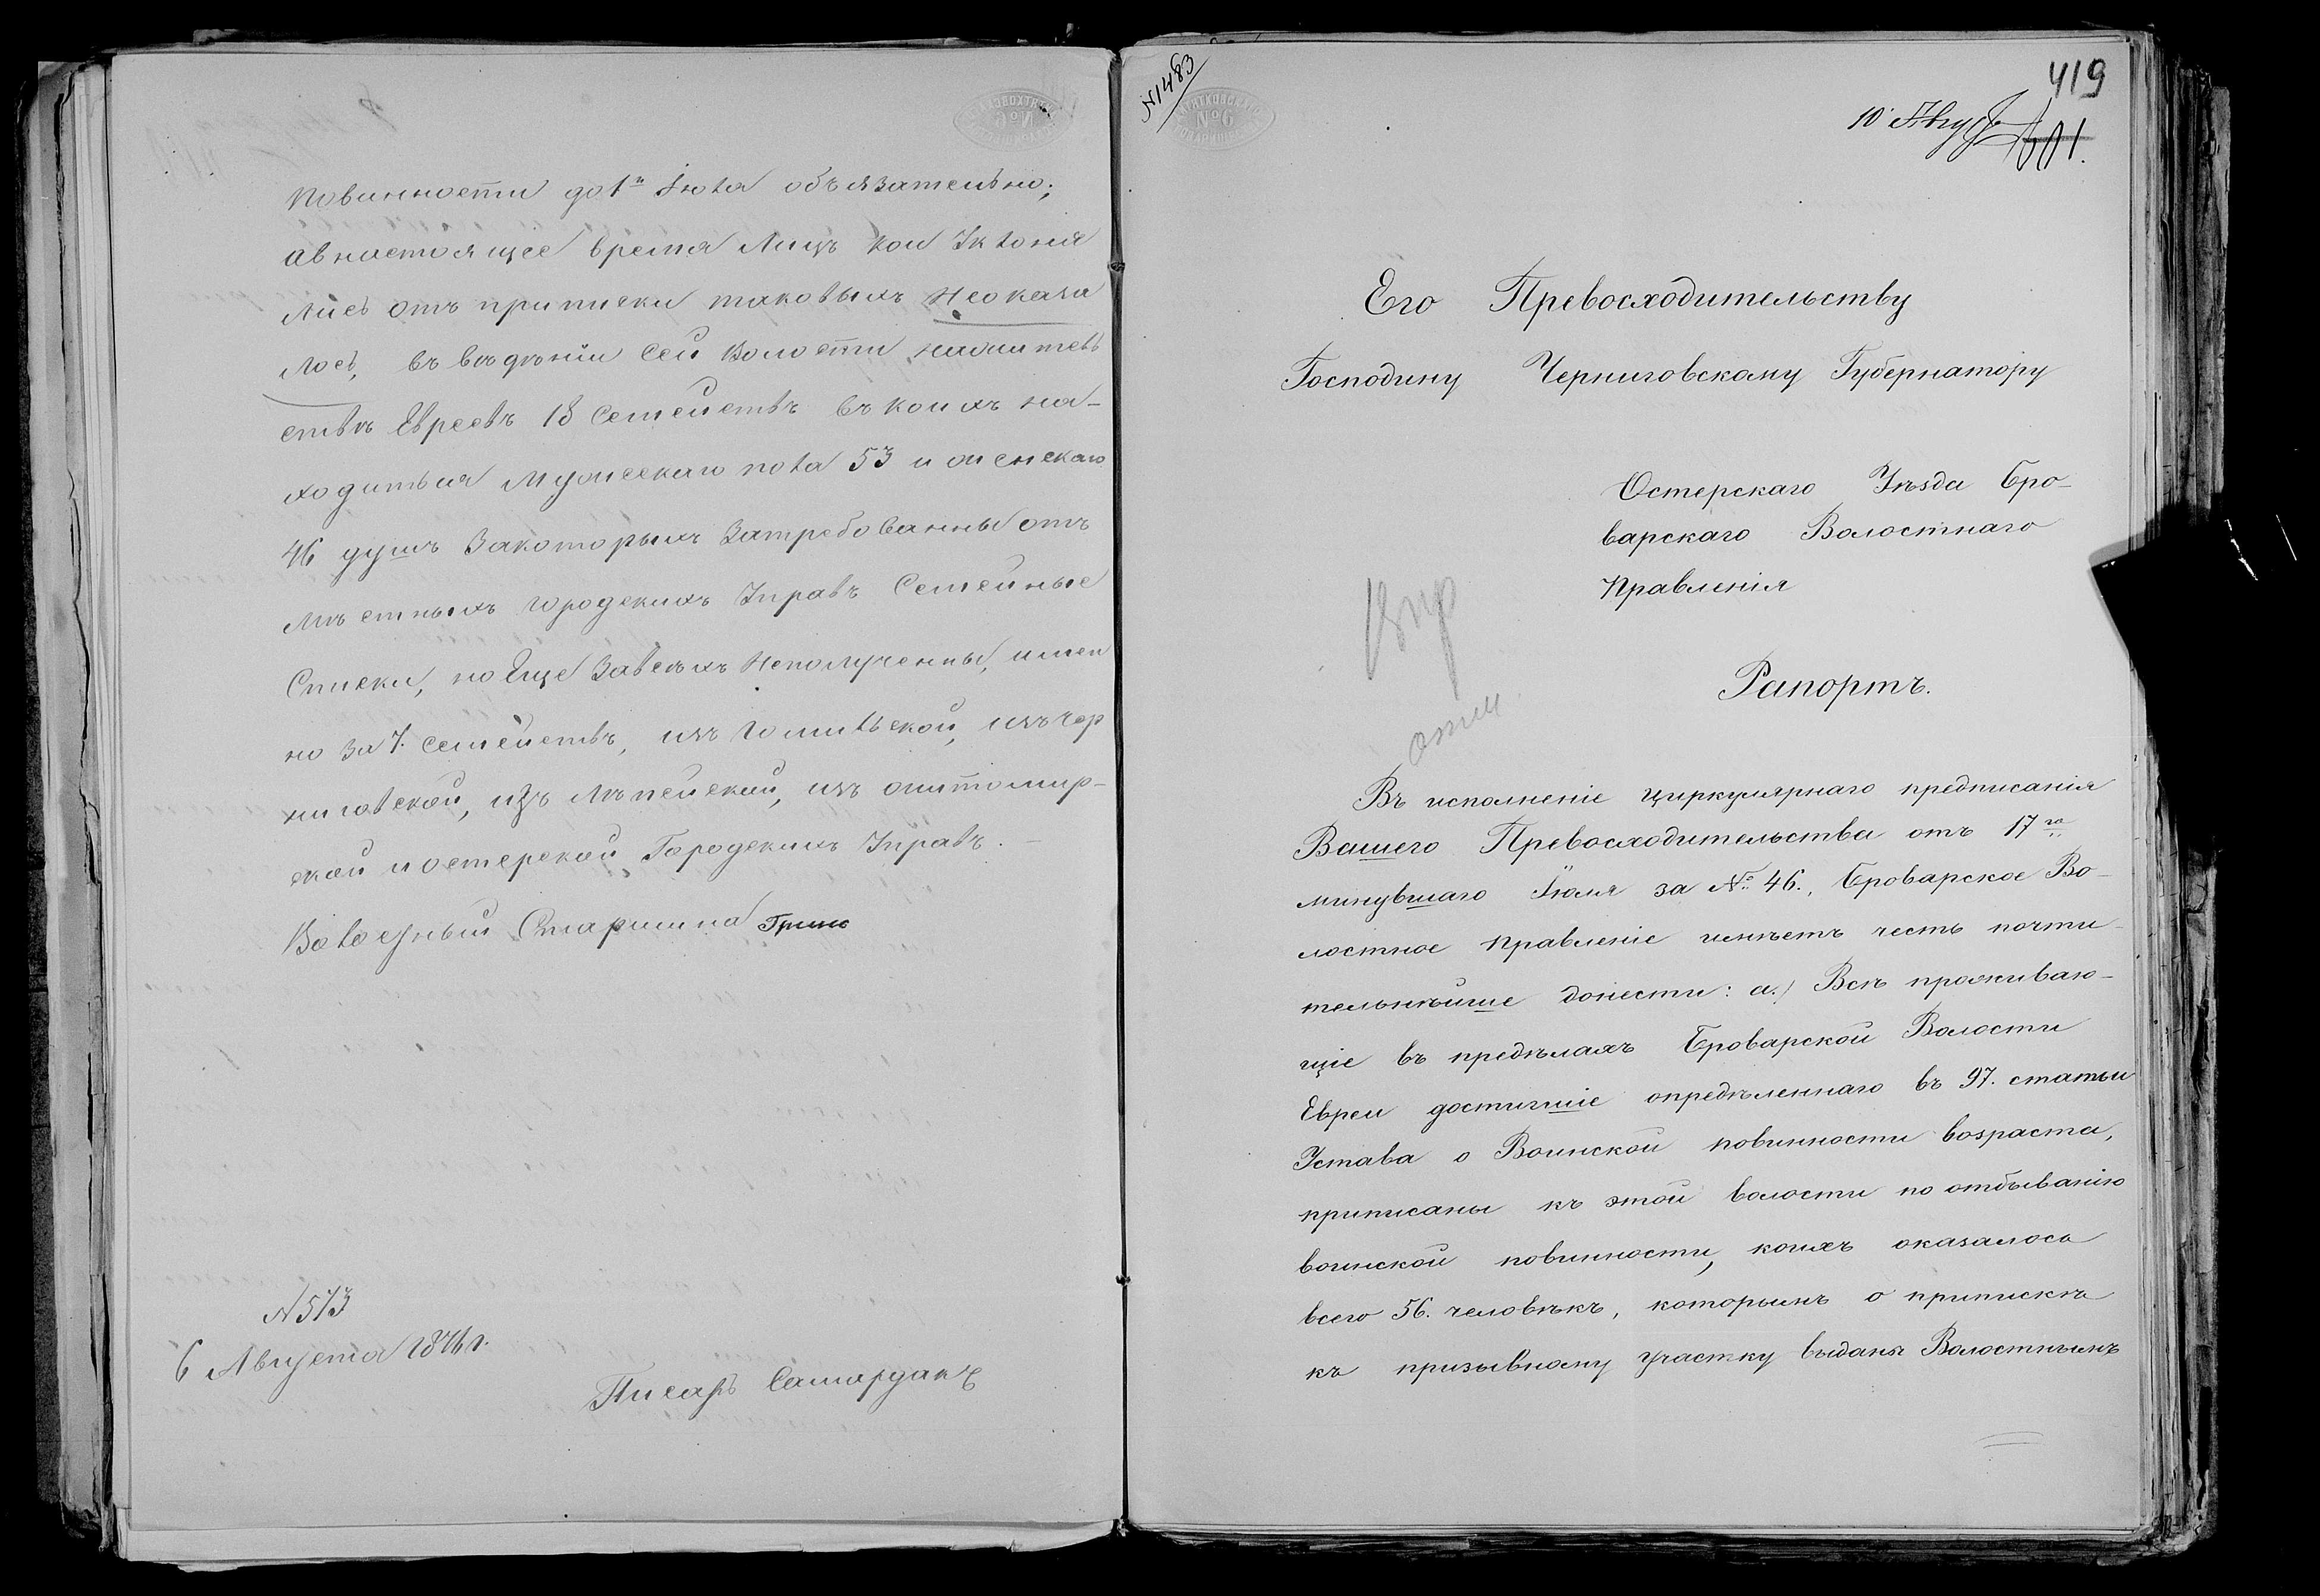 повинности до 1го Іюля объязательно;
авнастоящее время Лицъ кои Уклоня
лись отъ приписки таковыхъ Неоказа
лось, въ вѣдѣніи Сей Волости жительт
ствъ Евреевъ 18 Семействъ въ коихъ на-
ходиться Мужескаго пола 53 и женскаго
46 душъ Закоторыхъ Затребованны отъ
мѣстныхъ городскихъ Управъ Семейные
Списки, но Еще Завсѣхъ Неполученны, имен
но За 7. семействъ, изъ Гомильской, изъ Чер
ниговской, изъ Лѣпейской, изъ житомир-
ской и остерской Городскихъ Управъ.
Волостный Старшина
N 573
6 Августа 1876 г.
Писарь Самардакъ
N1483
№6
419
10 Авгус
601.
Его Превосходительству
Господину Черниговскому Губернатору
Остерскаго Уѣзда Бро-
варскаго Волостнаго
Правленія
Рапортъ.
Въ исполненіе циркулярнаго предписанія
Вашего Превосходительства отъ 17го
минувшаго Іюля за №. 46., Броварское Во-
лостное Правленіе имѣетъ честь почти-
тельнѣйше донести: а.) Всѣ проживаю-
щіе въ предѣлахъ Броварской Волости
Евреи достигшіе опредѣленнаго въ 97. статьи
Устава о Воинской повинности возраста,
приписаны къ этой волости по отбыванію
воинской повинности, коихъ оказалось
всего 56. человѣкъ, которымъ о припискѣ
къ призывному участку выданы Волостнымъ